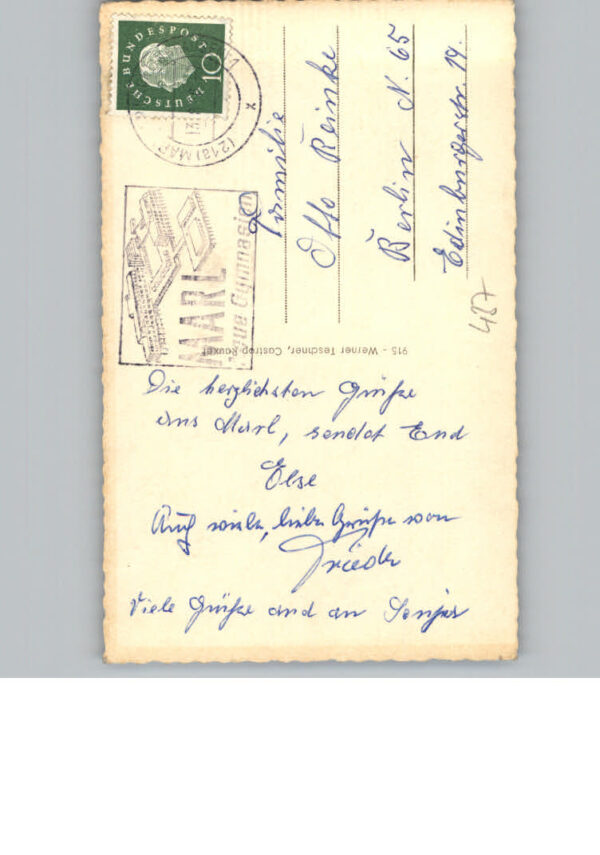 DEUTSCHE BUNDESPOST
10
(21a) MARL
MARL
neue Gymnasien
Familie
Otto Reinke
Berlin N. 65
Edinburgerstr. 19.
487
915 - Werner Teschner, Castrop-Rauxel
Die herzlichsten Grüße
aus Marl, sendet End
Else
Auch viele, liebe Grüße von
Frieder
Viele Grüße and an Sonja